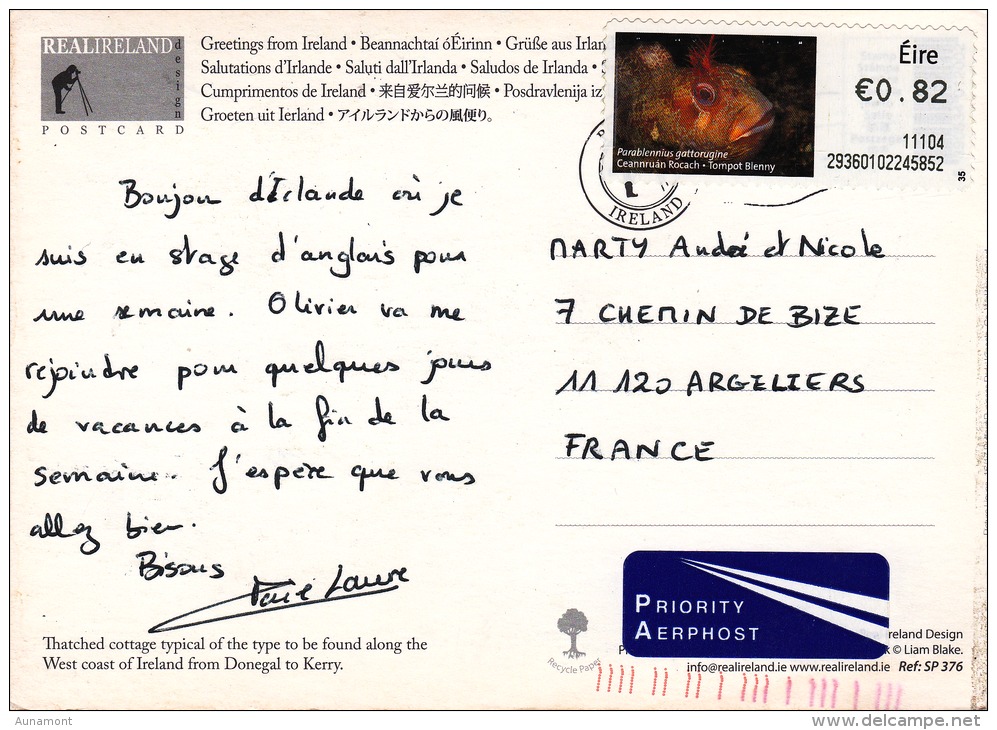 REALIRELAND
design
POSTCARD
Greetings from Ireland • Beannachtaí óÉirinn • Grüße aus Irlan
Salutations d'Irlande • Saluti dall'Irlanda • Saludos de Irlanda •
Cumprimentos de Ireland • 来自爱尔兰的问候 • Posdravlenija iz
Groeten uit Ierland • アイルランドからの風便り。
Éire
€0.82
11104
29360102245852
35
Parablennius gattorugine
Ceannruán Rocach • Tompot Blenny
IRELAND
Bonjour d'Irlande où je
suis en stage d'anglais pour
une semaine. Olivier va me
rejoindre pour quelques jours
de vacances à la fin de la
semaine. J'espère que vous
allez bien.
Bisous
Laure
MARTY André et Nicole
7 CHEMIN DE BIZE
11 120 ARGELIERS
FRANCE
PRIORITY
AERPHOST
Thatched cottage typical of the type to be found along the
West coast of Ireland from Donegal to Kerry.
Recycle Paper
Ireland Design
© Liam Blake.
info@realireland.ie www.realireland.ie Ref: SP 376
Aunamont
delcampe.net